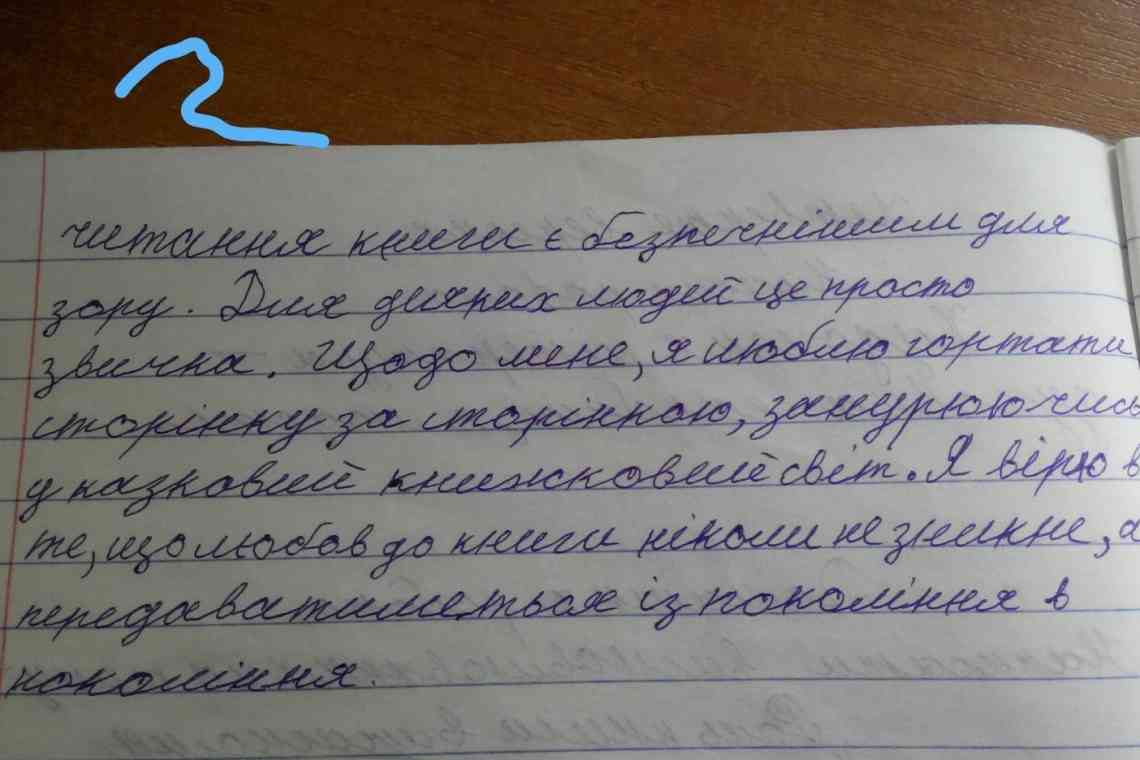 читання книги є безпечнішим для
зору. Для дияких людей це просто
звичка. Щодо мене, я люблю гортати
сторінку за сторінкою, занурюючись
у казковий книжковий світ. Я вірю в
те, що любов до книги ніколи не зникне, а
передаватиметься із покоління в
покоління.